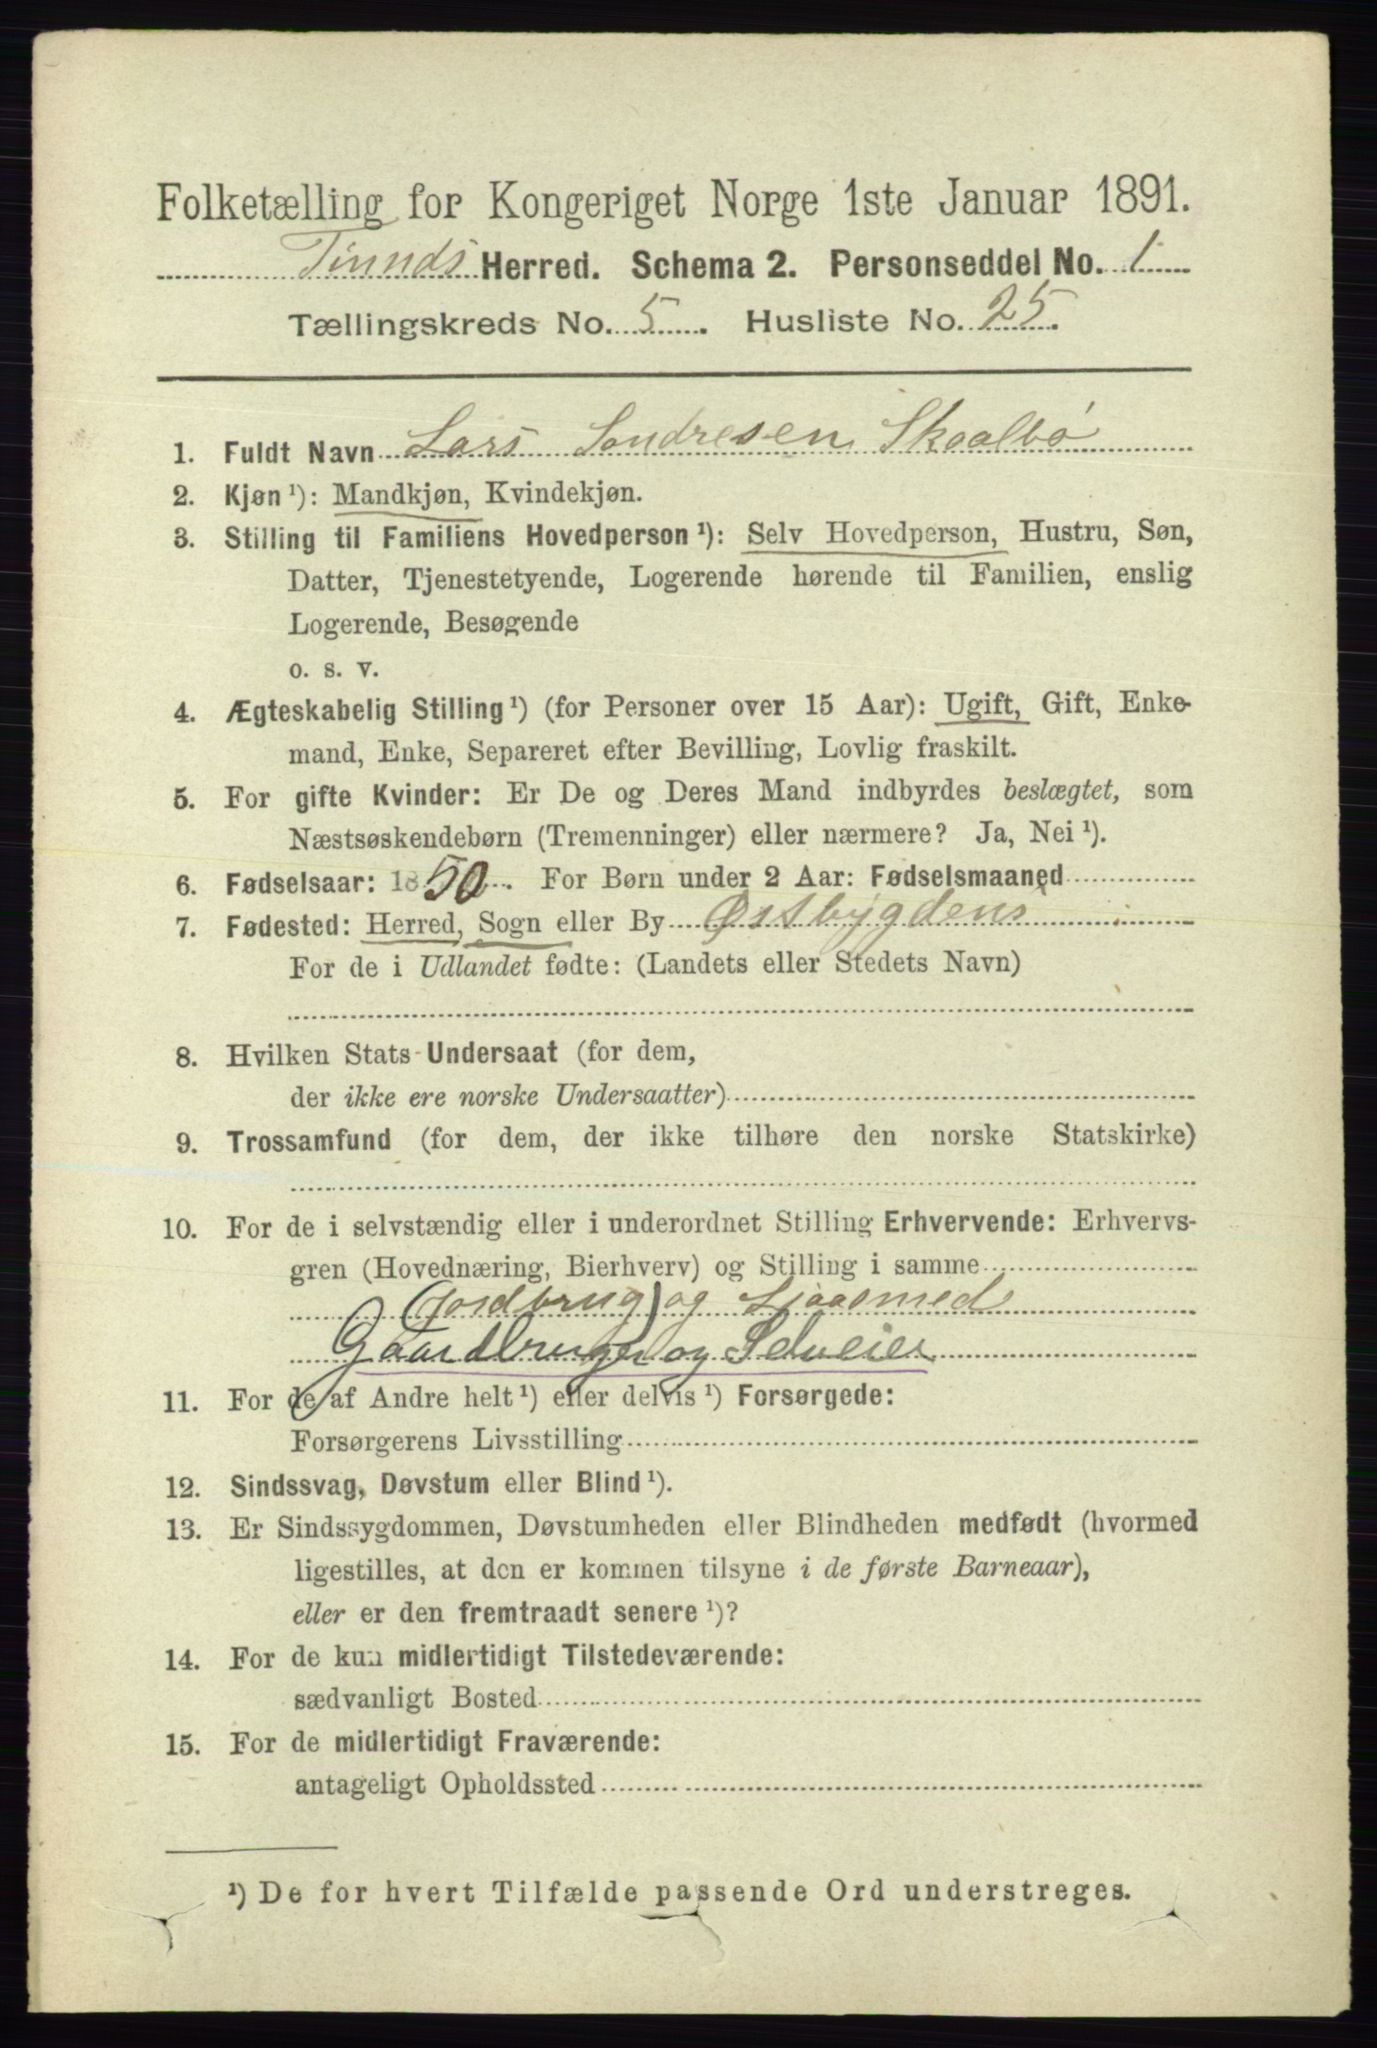 Folketælling for Kongeriget Norge 1ste Januar 1891.
Tinnds Herred. Schema 2. Personseddel No. 1
Tællingskreds No. 5. Husliste No. 25.
1. Fuldt Navn Lars Sondresen Skaalbø
2. Kjøn ¹): Mandkjøn, Kvindekjøn.
3. Stilling til Familiens Hovedperson ¹): Selv Hovedperson, Hustru, Søn,
Datter, Tjenestetyende, Logerende hørende til Familien, enslig
Logerende, Besøgende
o. s. v.
4. Ægteskabelig Stilling ¹) (for Personer over 15 Aar): Ugift, Gift, Enke-
mand, Enke, Separeret efter Bevilling, Lovlig fraskilt.
5. For gifte Kvinder: Er De og Deres Mand indbyrdes beslægtet, som
Næstsøskendebørn (Tremenninger) eller nærmere? Ja, Nei ¹).
6. Fødselsaar: 1850. For Børn under 2 Aar: Fødselsmaaned
7. Fødested: Herred, Sogn eller By Østbygdens
For de i Udlandet fødte: (Landets eller Stedets Navn)
8. Hvilken Stats Undersaat (for dem,
der ikke ere norske Undersaatter)
9. Trossamfund (for dem, der ikke tilhøre den norske Statskirke)
10. For de i selvstændig eller i underordnet Stilling Erhvervende: Erhvervs-
gren (Hovednæring, Bierhverv) og Stilling i samme
(Jordbrug) og
Gaardbruger og Selveier
11. For de af Andre helt ¹) eller delvis ¹) Forsørgede:
Forsørgerens Livsstilling
12. Sindssvag, Døvstum eller Blind ¹).
13. Er Sindssygdommen, Døvstumheden eller Blindheden medfødt (hvormed
ligestilles, at den er kommen tilsyne i de første Barneaar),
eller er den fremtraadt senere ¹)?
14. For de kun midlertidigt Tilstedeværende:
sædvanligt Bosted
15. For de midlertidigt Fraværende:
antageligt Opholdssted
¹) De for hvert Tilfælde passende Ord understreges.